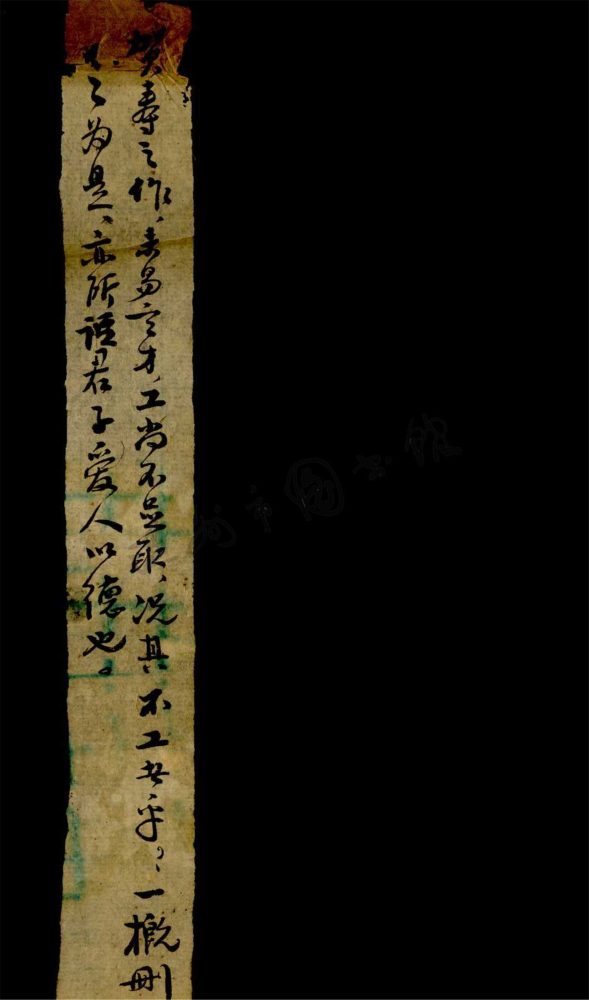 賀壽之作、未易言才、工尚不足取、況其不工者乎?、一概刪
去之為是、亦所謂君子愛人以德也。
州市圖书館